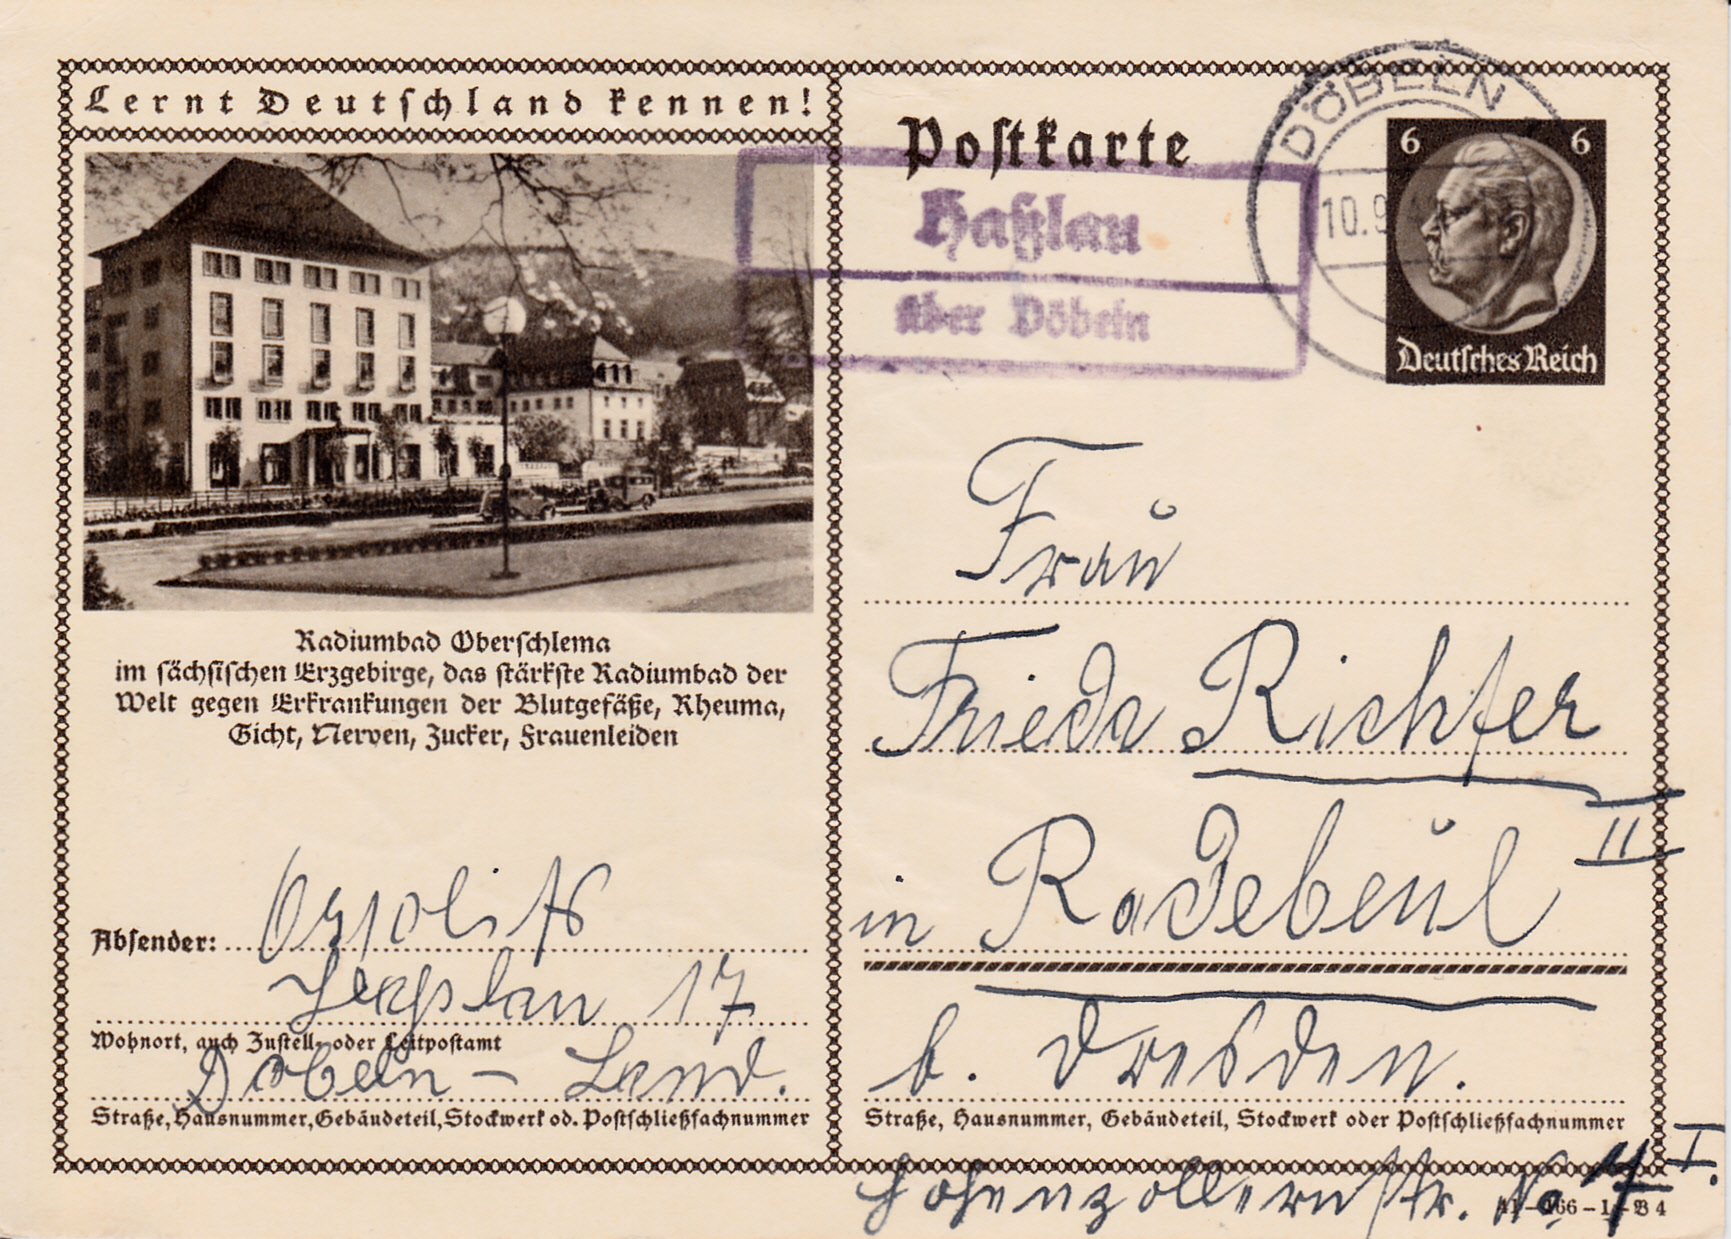 Lernt Deutschland kennen!
Radiumbad Oberschlema
im sächsischen Erzgebirge, das stärkste Radiumbad der
Welt gegen Erkrankungen der Blutgefäße, Rheuma,
Gicht, Nerven, Zucker, Frauenleiden
Absender:
Haßlau 17
Wohnort, auch Zustell- oder Leitpostamt
Döbeln – Land.
Straße, Hausnummer, Gebäudeteil, Stockwerk od. Postschließfachnummer
Postkarte
Haßlau
über Döbeln
DÖBELN
10.9
6 6
Deutsches Reich
Frau
Frieda Richter
in Radebeul II
b. Dresden.
Straße, Hausnummer, Gebäudeteil, Stockwerk oder Postschließfachnummer
Hohenzollernstr. No 17 I.